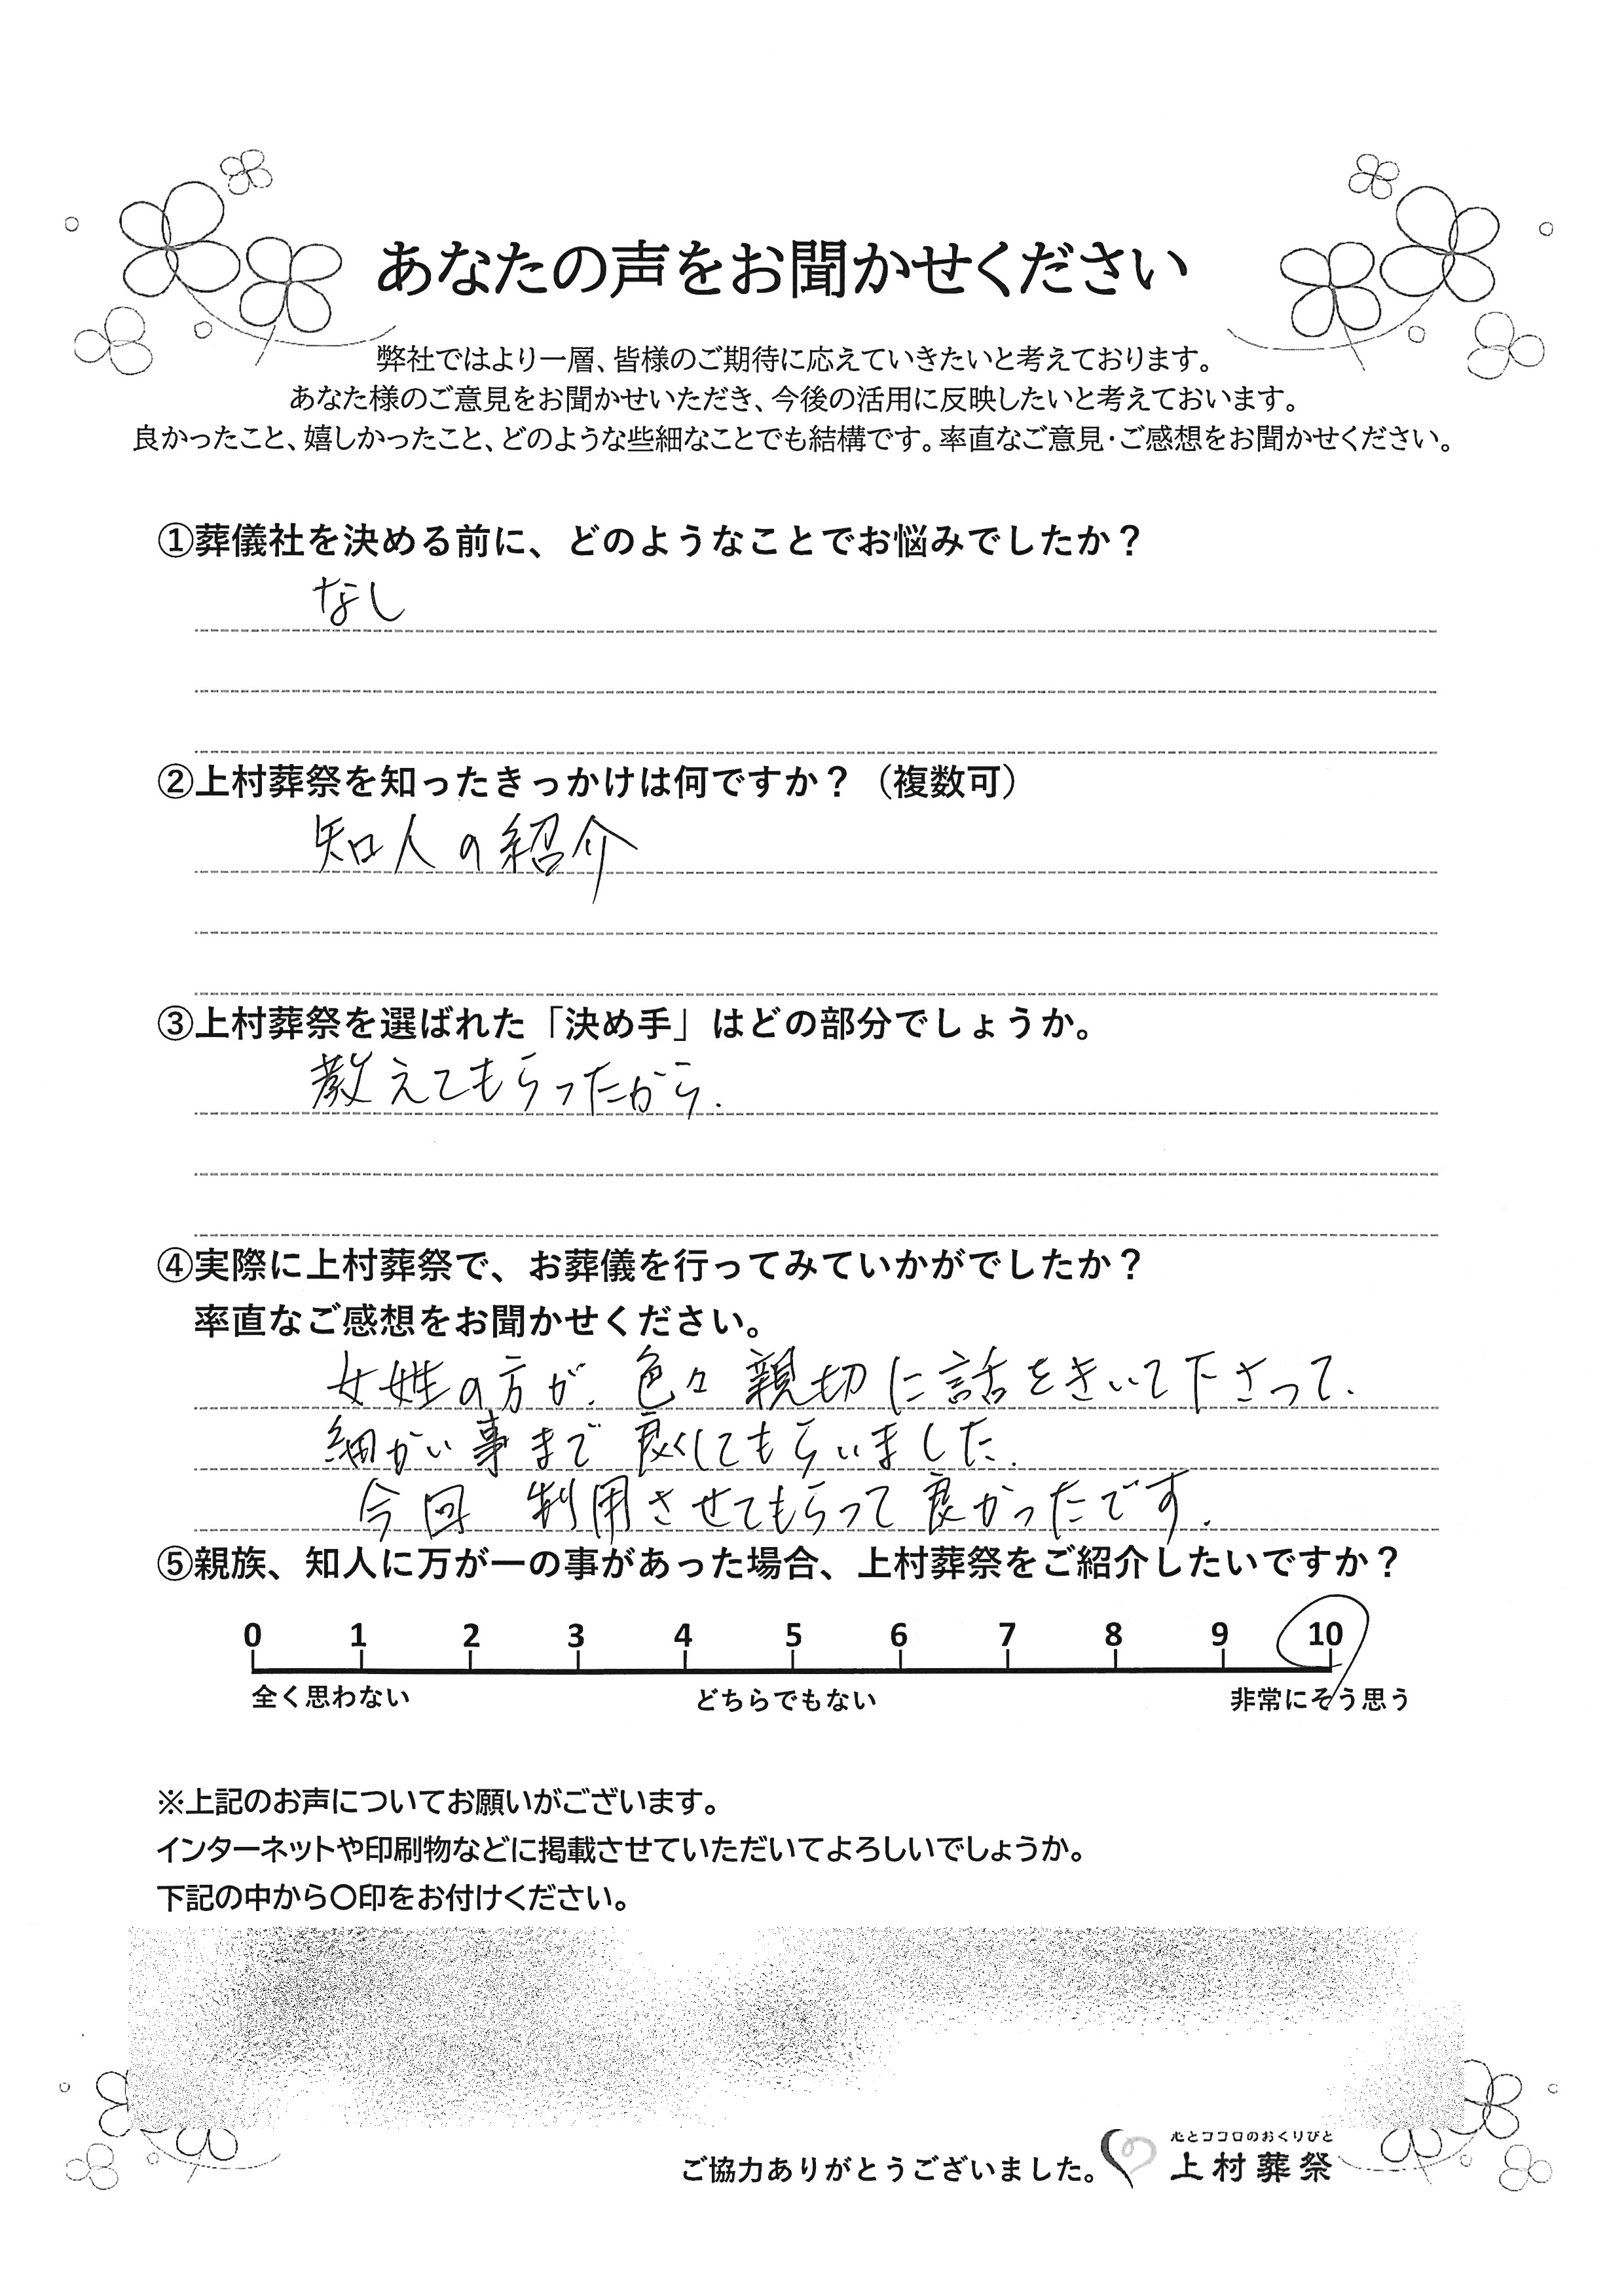 あなたの声をお聞かせください
弊社ではより一層、皆様のご期待に応えていきたいと考えております。
あなた様のご意見をお聞かせいただき、今後の活用に反映したいと考えておいます。
良かったこと、嬉しかったこと、どのような些細なことでも結構です。率直なご意見・ご感想をお聞かせください。
①葬儀社を決める前に、どのようなことでお悩みでしたか？
なし
②上村葬祭を知ったきっかけは何ですか？（複数可）
知人の紹介
③上村葬祭を選ばれた「決め手」はどの部分でしょうか。
教えてもらったから.
④実際に上村葬祭で、お葬儀を行ってみていかがでしたか？
率直なご感想をお聞かせください。
女姓の方が、色々親切に話をきいて下さって、
細かい事まで良くしてもらいました.
今回 利用させてもらって良かったです.
⑤親族、知人に万が一の事があった場合、上村葬祭をご紹介したいですか？
0 1 2 3 4 5 6 7 8 9 10
全く思わない どちらでもない 非常にそう思う
※上記のお声についてお願いがございます。
インターネットや印刷物などに掲載させていただいてよろしいでしょうか。
下記の中から〇印をお付けください。
心とココロのおくりびと
ご協力ありがとうございました。 上村葬祭